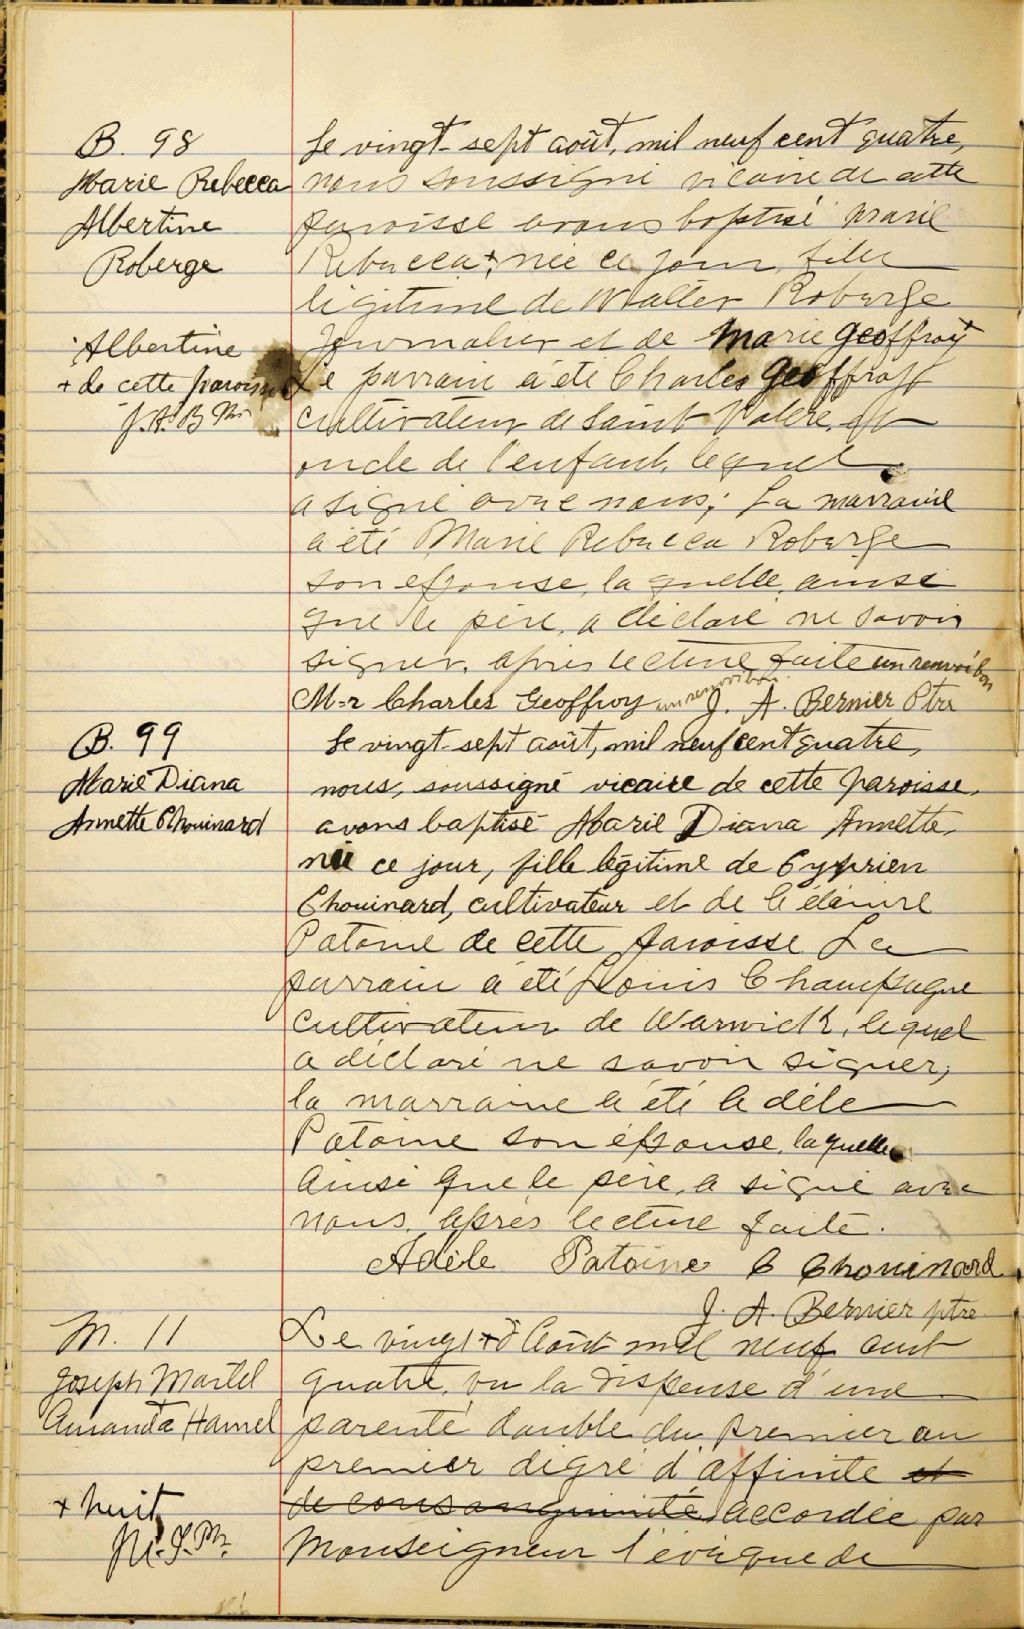 B. 98
Marie Rebecca
Albertine
Roberge
Albertine
+ de cette paroisse
J. A. B. Ptre
Le vingt-sept août, mil neuf cent quatre,
nous soussigné vicaire de cette
paroisse avons baptisé Marie
Rebecca +, née ce jour, fille
légitime de Walter Roberge
Journalier et de Marie Geoffroy +
Le parrain a été Charles Geoffroy
cultivateur de Saint Valère,
oncle de l'enfant, lequel
a signé avec nous; La marraine
a été Marie Rebecca Roberge
son épouse, laquelle, ainsi
que le père, a déclaré ne savoir
signer. Après lecture faite un renvoi bon
M-r Charles Geoffroy un renvoi bon. J. A. Bernier Ptre
B. 99
Marie Diana
Annette Chouinard
Le vingt-sept août, mil neuf cent quatre,
nous, soussigné vicaire de cette paroisse,
avons baptisé Marie Diana Annette,
née ce jour, fille légitime de Cyprien
Chouinard, cultivateur et de Célanire
Patoine de cette paroisse Le
parrain a été Louis Champagne
cultivateur de Warwick, lequel
a déclaré ne savoir signer,
la marraine a été Adèle
Patoine son épouse, laquelle
ainsi que le père, a signé avec
nous. Après lecture faite.
Adèle Patoine C Chouinard
J. A. Bernier ptre
M. 11
Joseph Martel
Amanda Hamel
+ huit
Le vingt + Août mil neuf cent
quatre, vu la dispense d'une
parenté double du premier au
premier degré d'affinité et
de consanguinité, accordée par
Monseigneur l'évêque de